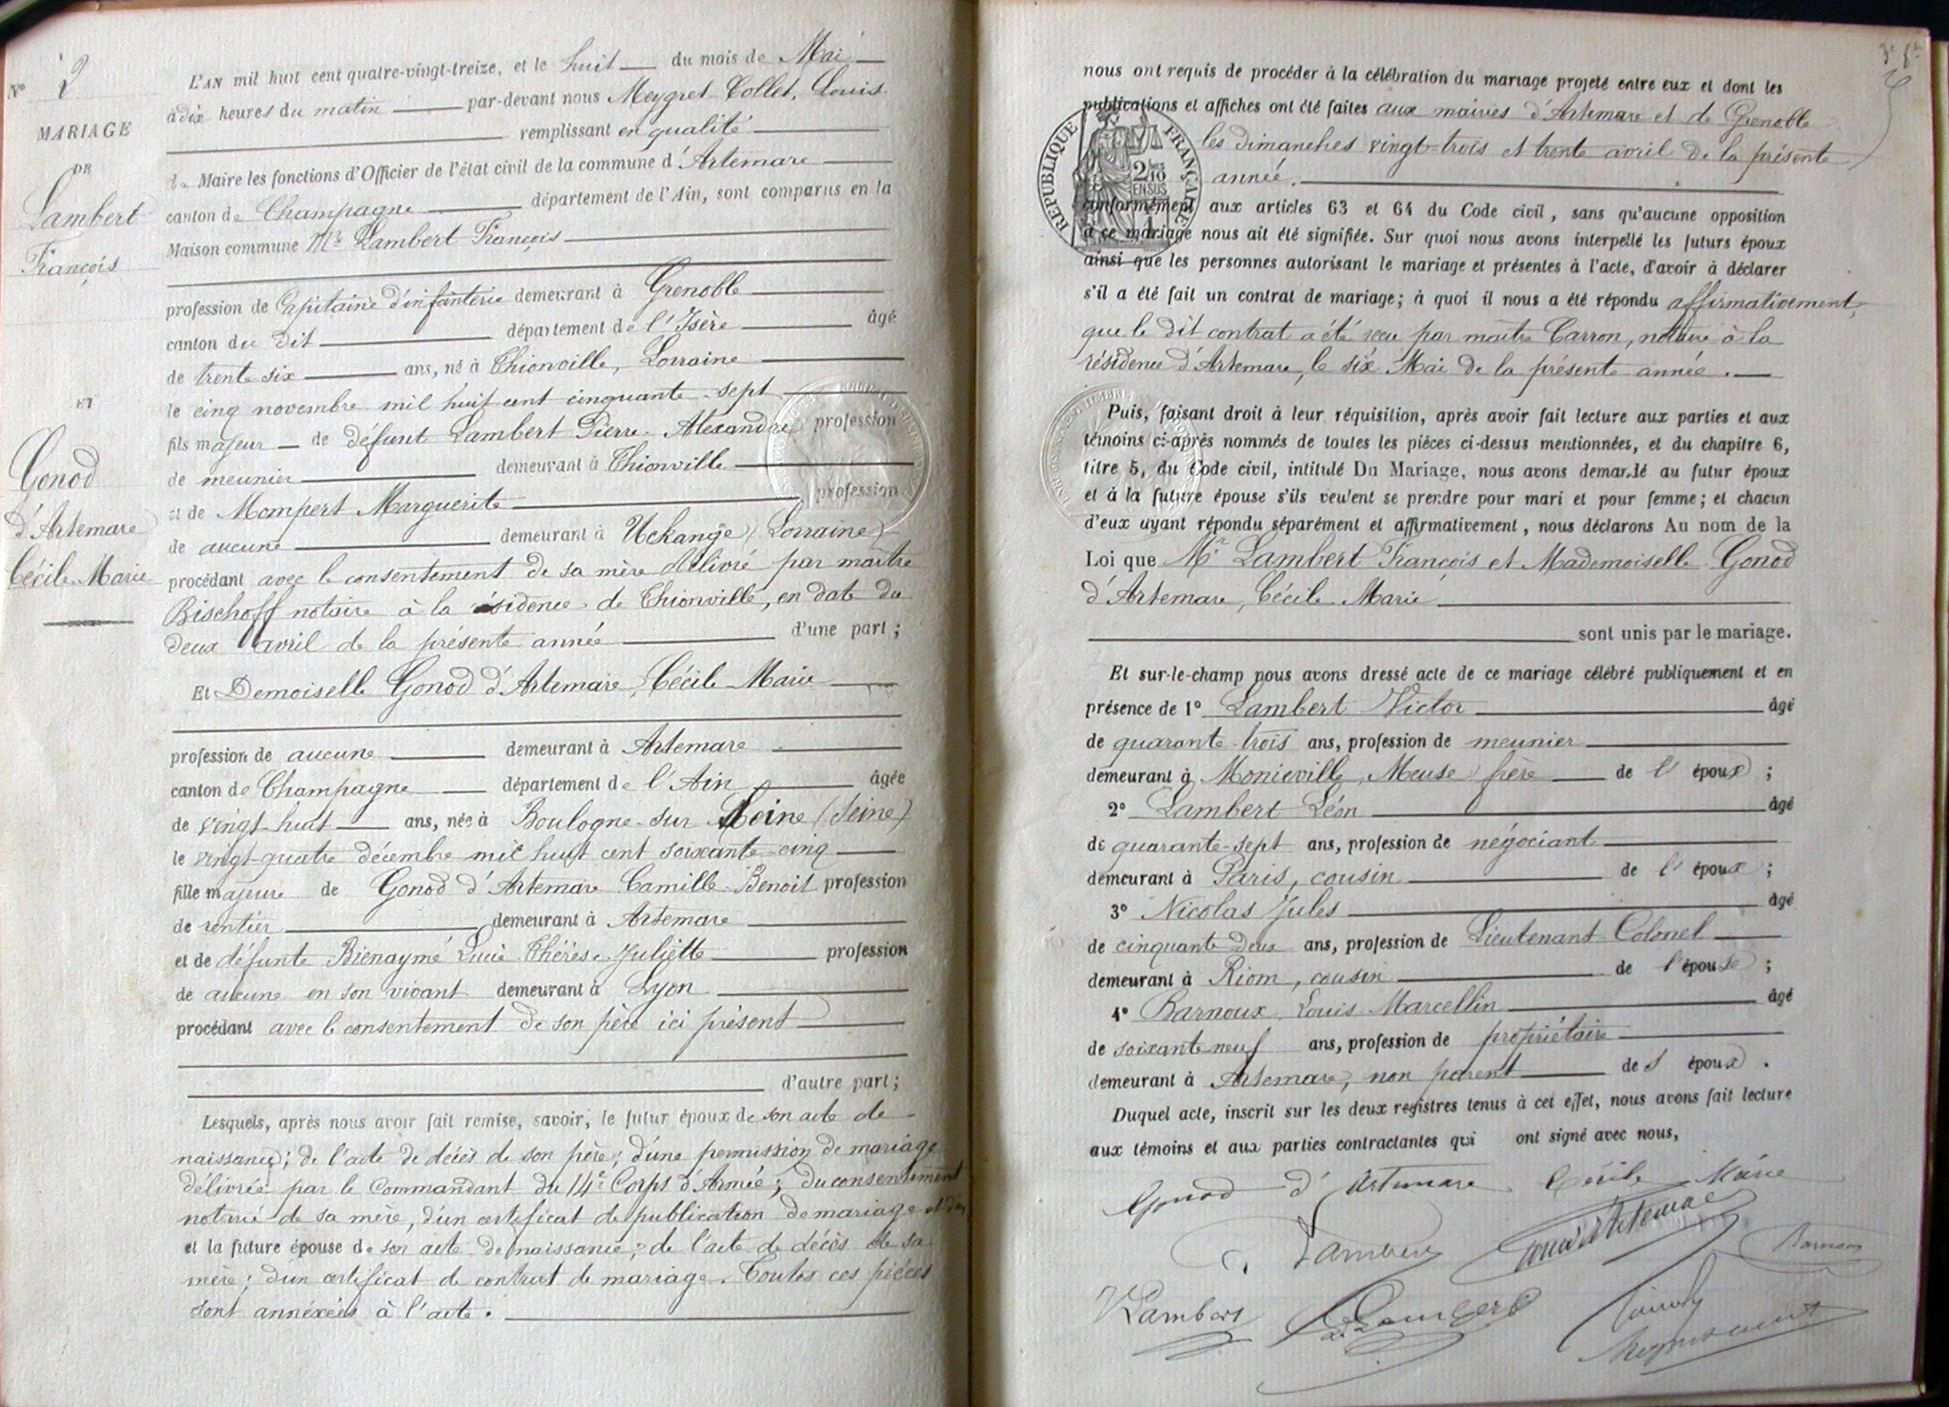 N° 2
MARIAGE
DE
Lambert
François
ET
Gonod
d'Artemare
Cécile Marie
L'AN mil huit cent quatre-vingt-treize, et le huit du mois de Mai
à dix heures du matin par-devant nous Meygret-Collet, Louis
remplissant en qualité
de Maire les fonctions d'Officier de l'état civil de la commune d'Artemare
canton de Champagne département de l'Ain, sont comparus en la
Maison commune Mr Lambert François
profession de Capitaine d'infanterie demeurant à Grenoble
canton du dit département de l'Isère âgé
de trente six ans, né à Thionville, Lorraine
le cinq novembre mil huit cent cinquante-sept
fils majeur de défunt Lambert Pierre-Alexandre profession
de meunier demeurant à Thionville
et de Mompert Marguerite profession
de aucune demeurant à Uckange (Lorraine)
procédant avec le consentement de sa mère délivré par maître
Bischoff notaire à la résidence de Thionville, en date du
deux avril de la présente année d'une part;
Et Demoiselle Gonod d'Artemare, Cécile Marie
profession de aucune demeurant à Artemare
canton de Champagne département de l'Ain âgée
de vingt-huit ans, née à Boulogne-sur-Seine (Seine)
le vingt-quatre décembre mil huit cent soixante-cinq
fille majeure de Gonod d'Artemare Camille-Benoit profession
de rentier demeurant à Artemare
et de défunte Bienaymé Lucie Thérèse Juliette profession
de aucune en son vivant demeurant à Lyon
procédant avec le consentement de son père ici présent
d'autre part;
Lesquels, après nous avoir fait remise, savoir, le futur époux de son acte de
naissance; de l'acte de décès de son père; d'une permission de mariage
délivrée par le Commandant du 14e Corps d'Armée; du consentement
notarié de sa mère, d'un certificat de publication de mariage
et la future épouse de son acte de naissance; de l'acte de décès de sa
mère; d'un certificat de contrat de mariage. Toutes ces pièces
sont annexées à l'acte.
nous ont requis de procéder à la célébration du mariage projeté entre eux et dont les
publications et affiches ont été faites aux mairies d'Artemare et de Grenoble
les dimanches vingt-trois et trente avril de la présente
année.
RÉPUBLIQUE FRANÇAISE
2/10 EN SUS
conformément aux articles 63 et 64 du Code civil, sans qu'aucune opposition
à ce mariage nous ait été signifiée. Sur quoi nous avons interpellé les futurs époux
ainsi que les personnes autorisant le mariage et présentes à l'acte, d'avoir à déclarer
s'il a été fait un contrat de mariage; à quoi il nous a été répondu affirmativement,
que le dit contrat a été reçu par maître Carron, notaire à la
résidence d'Artemare, le six Mai de la présente année.
Puis, faisant droit à leur réquisition, après avoir fait lecture aux parties et aux
témoins ci-après nommés de toutes les pièces ci-dessus mentionnées, et du chapitre 6,
titre 5, du Code civil, intitulé Du Mariage, nous avons demandé au futur époux
et à la future épouse s'ils veulent se prendre pour mari et pour femme; et chacun
d'eux ayant répondu séparément et affirmativement, nous déclarons Au nom de la
Loi que Mr Lambert François et Mademoiselle Gonod
d'Artemare, Cécile Marie
sont unis par le mariage.
Et sur-le-champ nous avons dressé acte de ce mariage célébré publiquement et en
présence de 1° Lambert Victor âgé
de quarante-trois ans, profession de meunier
demeurant à Monieville, Meuse frère de l'époux;
2° Lambert Léon âgé
de quarante-sept ans, profession de négociant
demeurant à Paris, cousin de l'époux;
3° Nicolas Jules âgé
de cinquante deux ans, profession de Lieutenant-Colonel
demeurant à Riom, cousin de l'épouse;
4° Barnoux Louis Marcellin âgé
de soixante neuf ans, profession de propriétaire
demeurant à Artemare, non parent des époux.
Duquel acte, inscrit sur les deux registres tenus à cet effet, nous avons fait lecture
aux témoins et aux parties contractantes qui ont signé avec nous,
Gonod d'Artemare Cécile Marie
Lambert Gonod d'Artemare Barnoux
VLambert